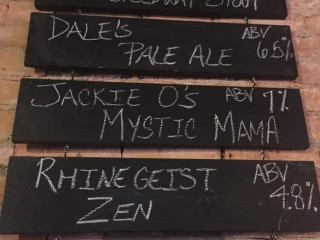 SPEEDWAY STOUT
DALE'S ABV
PALE ALE 6.5%
JACKIE O'S ABV 7%
MYSTIC MAMA
RHINEGEIST ABV
ZEN 4.8%